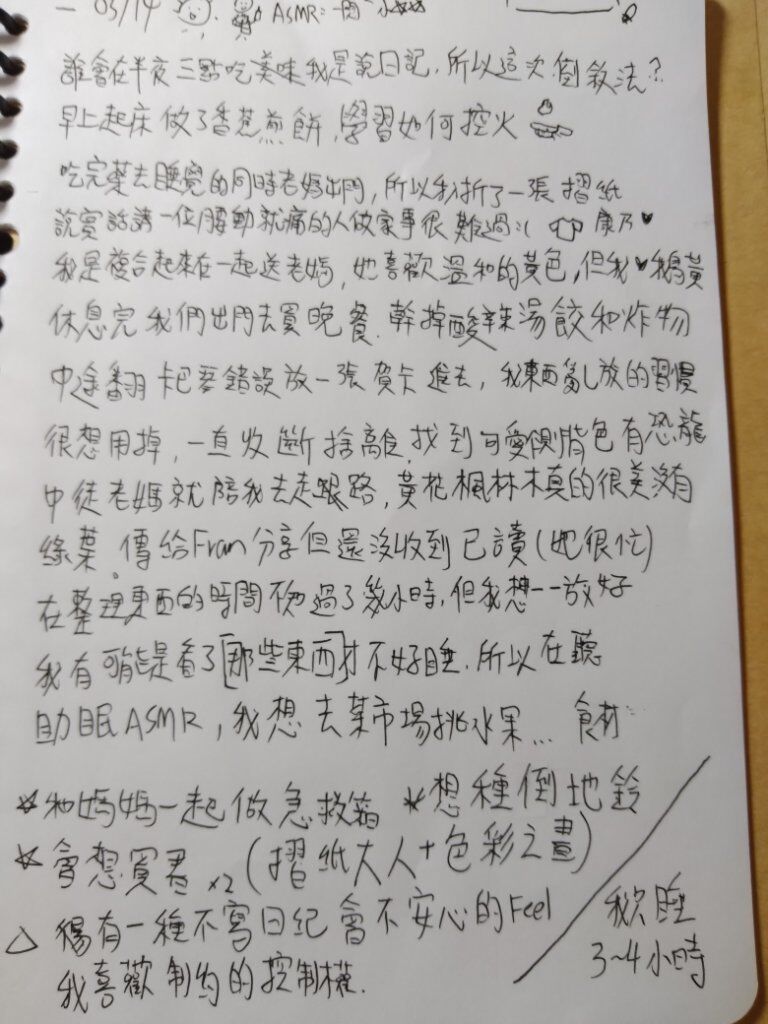 03/14 ASMR:
誰會在半夜三點吃美味我是說日記,所以這次倒敘法?
早上起床做了香蕉煎餅,學習如何控火
吃完藥去睡覺的同時老媽出門,所以我折了一張摺紙
說實話請一位腰動就痛的人做家事很難過:( 康乃♥
我是複合起來在一起送老媽,她喜歡溫和的黃色,但我♥鵝黃
休息完我們出門去買晚餐.幹掉酸辣湯餃和炸物
中途翻卡包要錯誤放一張賀卡進去,我東西亂放的習慣
很想甩掉,一直收斷捨離,找到可愛側背包有恐龍
中徒老媽就陪我去走路,黃花楓林木真的很美沒有
綠葉。傳給Fran分享但還沒收到已讀(她很忙)
在整理東西的時間不過了幾小時,但我想一一放好
我有可能是看了[那些東西]才不好睡.所以在聽
助眠ASMR,我想去菜市場挑水果... 食材
☆和媽媽一起做急救箱 ☆想種倒地鈴
☆會想買書x2(摺紙大人+色彩之書)
△ 有一種不寫日紀會不安心的Feel
我喜歡制約的控制權.
我睡
3~4小時